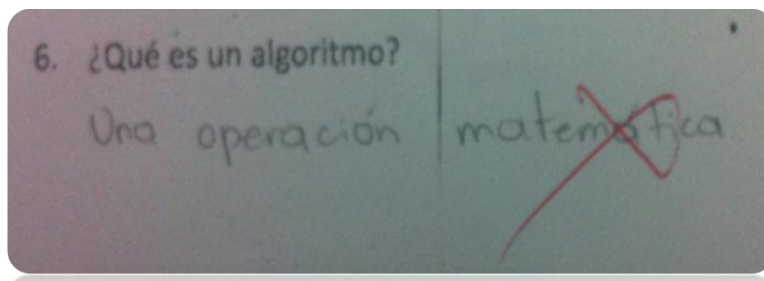 6. ¿Qué es un algoritmo?
Una operación matemática